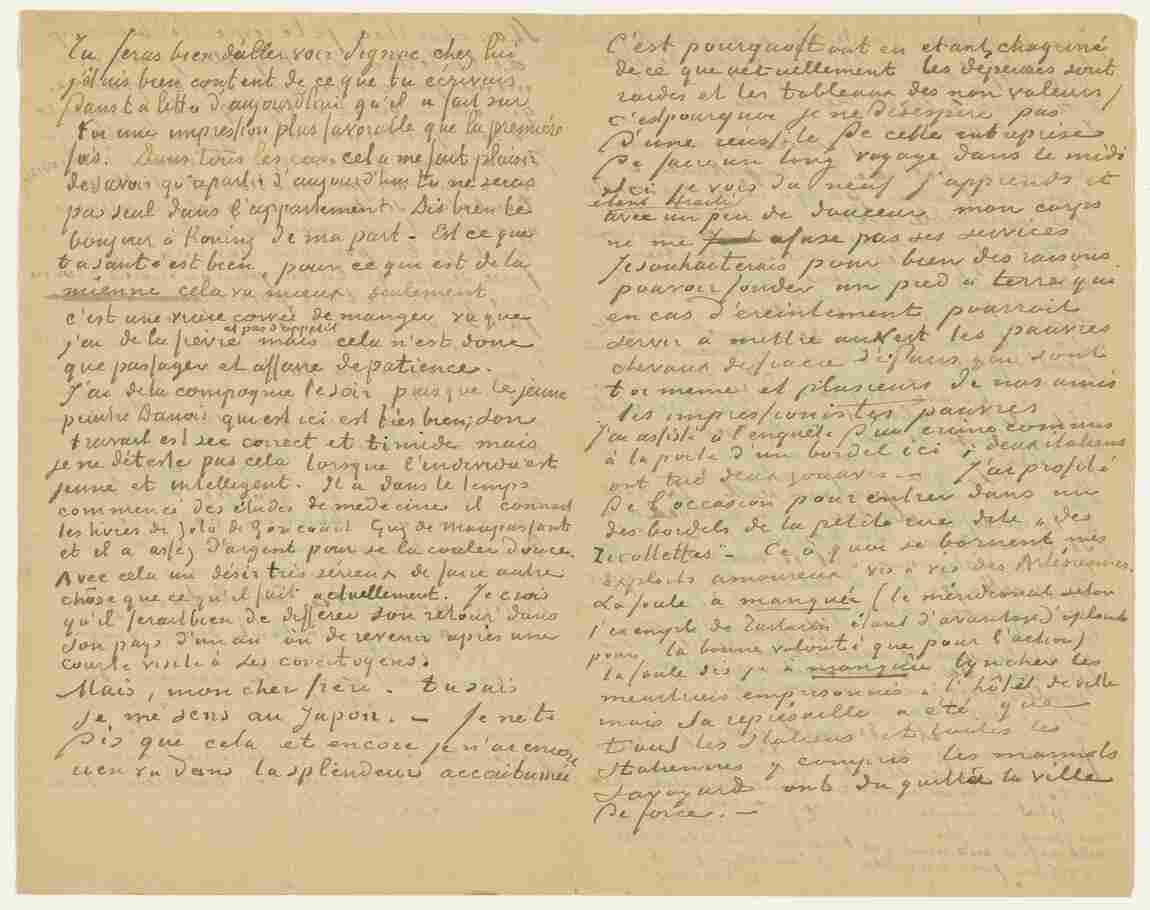 Tu feras bien d'aller voir Signac chez lui
j'étais bien content de ce que tu écrivais
dans ta lettre d'aujourd'hui qu'il a fait sur
toi une impression plus favorable que la première
fois. Dans tous les cas cela me fait plaisir
de savoir qu'à partir d'aujourd'hui tu ne seras
pas seul dans l'appartement. Dis bien le
bonjour à Koning de ma part – Est ce que
ta santé est bien, pour ce qui est de la
mienne cela va mieux, seulement
c'est une vraie corvée de manger vu que
j'ai de la fièvre et pas d'appétit mais cela n'est donc
que passager et affaire de patience.
J'ai de la compagnie le soir puisque le jeune
peintre Danois qui est ici est très bien; son
travail est sec correct et timide mais
je ne déteste pas cela lorsque l'individu est
jeune et intelligent. Il a dans le temps
commencé des études de médecine il connait
les livres de Zola de Goncourt Guy de Maupassant
et il a assez d'argent pour se la couler douce.
Avec cela un désir très sérieux de faire autre
chose que ce qu'il fait actuellement. Je crois
qu'il ferait bien de différer son retour dans
son pays d'un an ou de revenir après une
courte visite à ses concitoyens.
Mais, mon cher frère – tu sais
je me sens au Japon. – Je ne te
dis que cela et encore je n'ai encore
rien vu dans la splendeur accoutumée
C'est pourquoi tout en étant chagriné
de ce que actuellement les dépenses sont
raides et les tableaux des non valeurs,
c'est pourquoi je ne désespère pas
d'une réussite de cette entreprise
de faire un long voyage dans le midi
Ici je vois du neuf j'apprends et
étant traité
avec un peu de douceur mon corps
ne me refuse pas ses services
Je souhaiterais pour bien des raisons
pouvoir fonder un pied à terre qui
en cas d'éreintement pourrait
servir à mettre au vert les pauvres
chevaux de fiacre de Paris qui sont
toi même et plusieurs de nos amis
les impressionistes pauvres
J'ai assisté à l'enquête d'un crime commis
à la porte d'un bordel ici; deux italiens
ont tué deux zouaves. – J'ai profité
de l'occasion pour entrer dans un
des bordels de la petite rue dite „des
ricollettes“ – Ce à quoi se bornent mes
exploits amoureux vis à vis des Arlésiennes.
La foule à manqué (le méridional selon
l'exemple de Tartarin étant d'avantage d'aplomb
pour la bonne volonté que pour l'action)
la foule dis je à manqué lyncher les
meurtriers emprisonnés à l'hôtel de ville
mais sa représaille a été que
tous les Italiens et toutes les
Italiennes y compris les marmots
savoyards ont du quitter la ville
de force. –